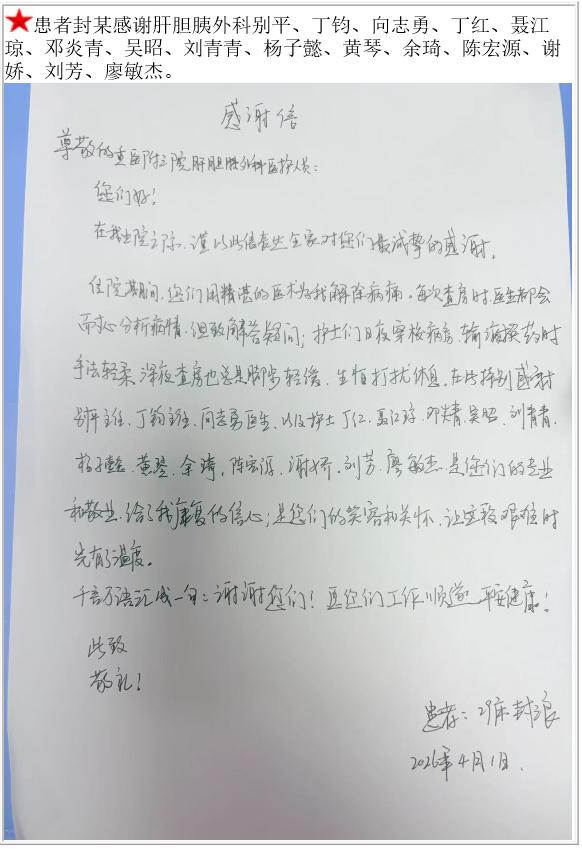 患者封某感谢肝胆胰外科别平、丁钧、向志勇、丁红、聂江
琼、邓炎青、吴昭、刘青青、杨子懿、黄琴、余琦、陈宏源、谢
娇、刘芳、廖敏杰。
感谢信
尊敬的重医附三院肝胆胰外科医护人员：
您们好！
在我出院之际，谨以此信表达全家对您们最诚挚的感谢。
住院期间，您们用精湛的医术为我解除病痛。每次查房时，医生都会
耐心分析病情、细致解答疑问；护士们日夜穿梭病房，输液换药时
手法轻柔，深夜查房也总是脚步轻缓，生怕打扰休息。在此特别感谢
别平主任、丁钧主任、向志勇医生，以及护士丁红、聂江琼、邓炎青、吴昭、刘青青、
杨子懿、黄琴、余琦、陈宏源、谢娇、刘芳、廖敏杰，是您们的专业
和敬业，给了我康复的信心；是您们的笑容和关怀，让这段艰难时
光有了温度。
千言万语汇成一句：谢谢您们！愿您们工作顺遂，平安健康！
此致
敬礼！
患者：29床封浪
2026年4月1日.